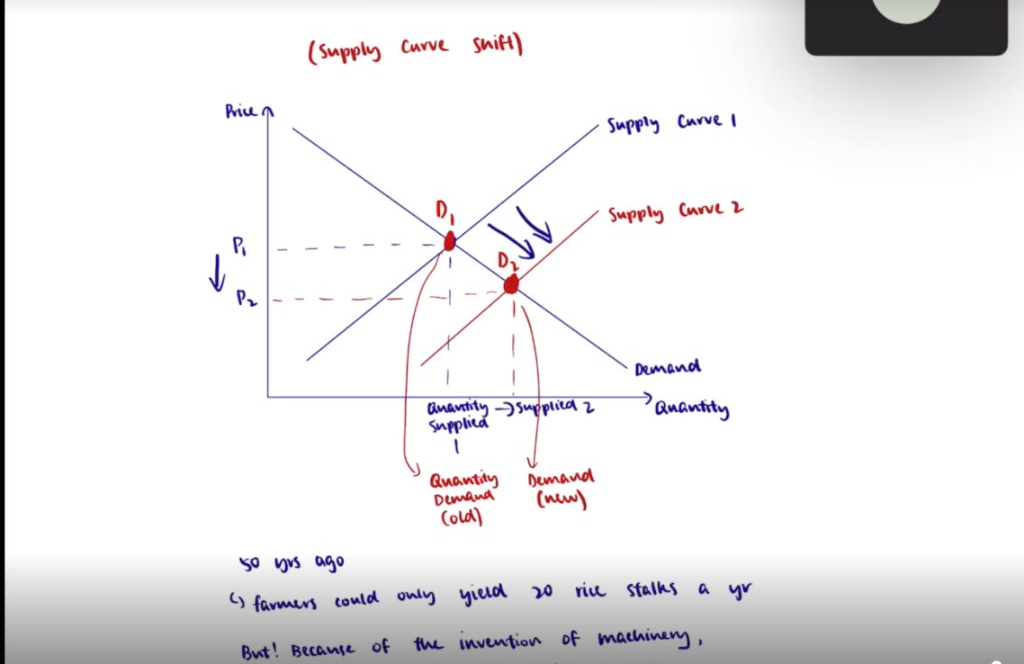 (Supply Curve Shift)
Price
Supply Curve 1
Supply Curve 2
D1
P1
D2
P2
Demand
Quantity → Supplied 2
Quantity
Supplied
1
Quantity
Demand
(old)
Demand
(new)
50 yrs ago
↳ farmers could only yield 20 rice stalks a yr
But! Because of the invention of machinery,